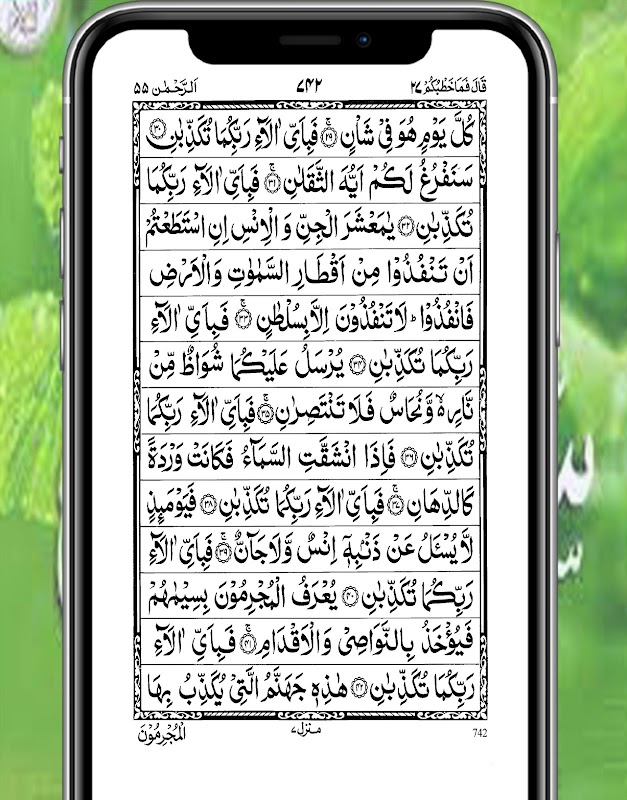 قَالَ فَمَا خَطْبُكُمْ ٢٧ ٧٤٢ اَلرَّحْمٰن ٥٥
كُلَّ يَوْمٍ هُوَ فِىْ شَاْنٍ ۚ‏﴿۲۹﴾ فَبِاَىِّ اٰلَاۤءِ رَبِّكُمَا تُكَذِّبٰنِ ﴿۳۰﴾
سَنَفْرُغُ لَكُمْ اَيُّهَ الثَّقَلٰنِ ۚ‏﴿۳۱﴾ فَبِاَىِّ اٰلَاۤءِ رَبِّكُمَا
تُكَذِّبٰنِ ﴿۳۲﴾ يٰمَعْشَرَ الْجِنِّ وَ الْاِنْسِ اِنِ اسْتَطَعْتُمْ
اَنْ تَنْفُذُوْا مِنْ اَقْطَارِ السَّمٰوٰتِ وَ الْاَرْضِ
فَانْفُذُوْا ؕ لَا تَنْفُذُوْنَ اِلَّا بِسُلْطٰنٍ ۚ‏﴿۳۳﴾ فَبِاَىِّ اٰلَاۤءِ
رَبِّكُمَا تُكَذِّبٰنِ ﴿۳۴﴾ يُرْسَلُ عَلَيْكُمَا شُوَاظٌ مِّنْ
نَّارٍ ۙ۬ وَّ نُحَاسٌ فَلَا تَنْتَصِرٰنِ ۚ‏﴿۳۵﴾ فَبِاَىِّ اٰلَاۤءِ رَبِّكُمَا
تُكَذِّبٰنِ ﴿۳۶﴾ فَاِذَا انْشَقَّتِ السَّمَآءُ فَكَانَتْ وَرْدَةً
كَالدِّهَانِ ۚ‏﴿۳۷﴾ فَبِاَىِّ اٰلَاۤءِ رَبِّكُمَا تُكَذِّبٰنِ ﴿۳۸﴾ فَيَوْمَئِذٍ
لَّا يُسْئَلُ عَنْ ذَنْۢبِهٖۤ اِنْسٌ وَّ لَا جَآنٌّ ۚ‏﴿۳۹﴾ فَبِاَىِّ اٰلَاۤءِ
رَبِّكُمَا تُكَذِّبٰنِ ﴿۴۰﴾ يُعْرَفُ الْمُجْرِمُوْنَ بِسِيْمٰهُمْ
فَيُؤْخَذُ بِالنَّوَاصِىْ وَ الْاَقْدَامِ ۚ‏﴿۴۱﴾ فَبِاَىِّ اٰلَاۤءِ
رَبِّكُمَا تُكَذِّبٰنِ ﴿۴۲﴾ هٰذِهٖ جَهَنَّمُ الَّتِىْ يُكَذِّبُ بِهَا
الْمُجْرِمُوْنَ منزل ٧ 742